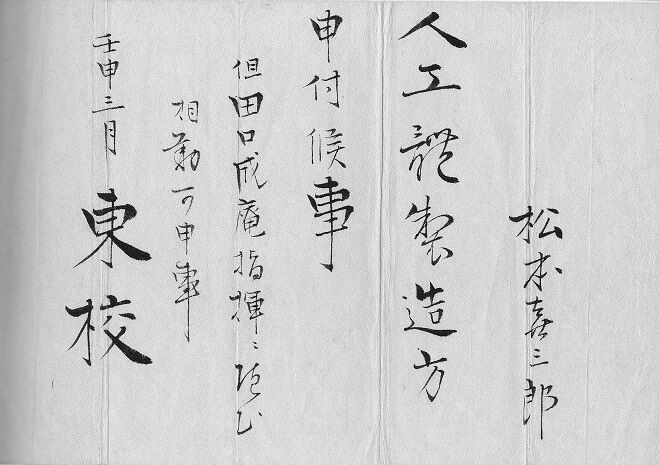 松本喜三郎
人工體製造方
申付候事
但田口成庵指揮ニ随ひ
相勤可申事
壬申三月
東校